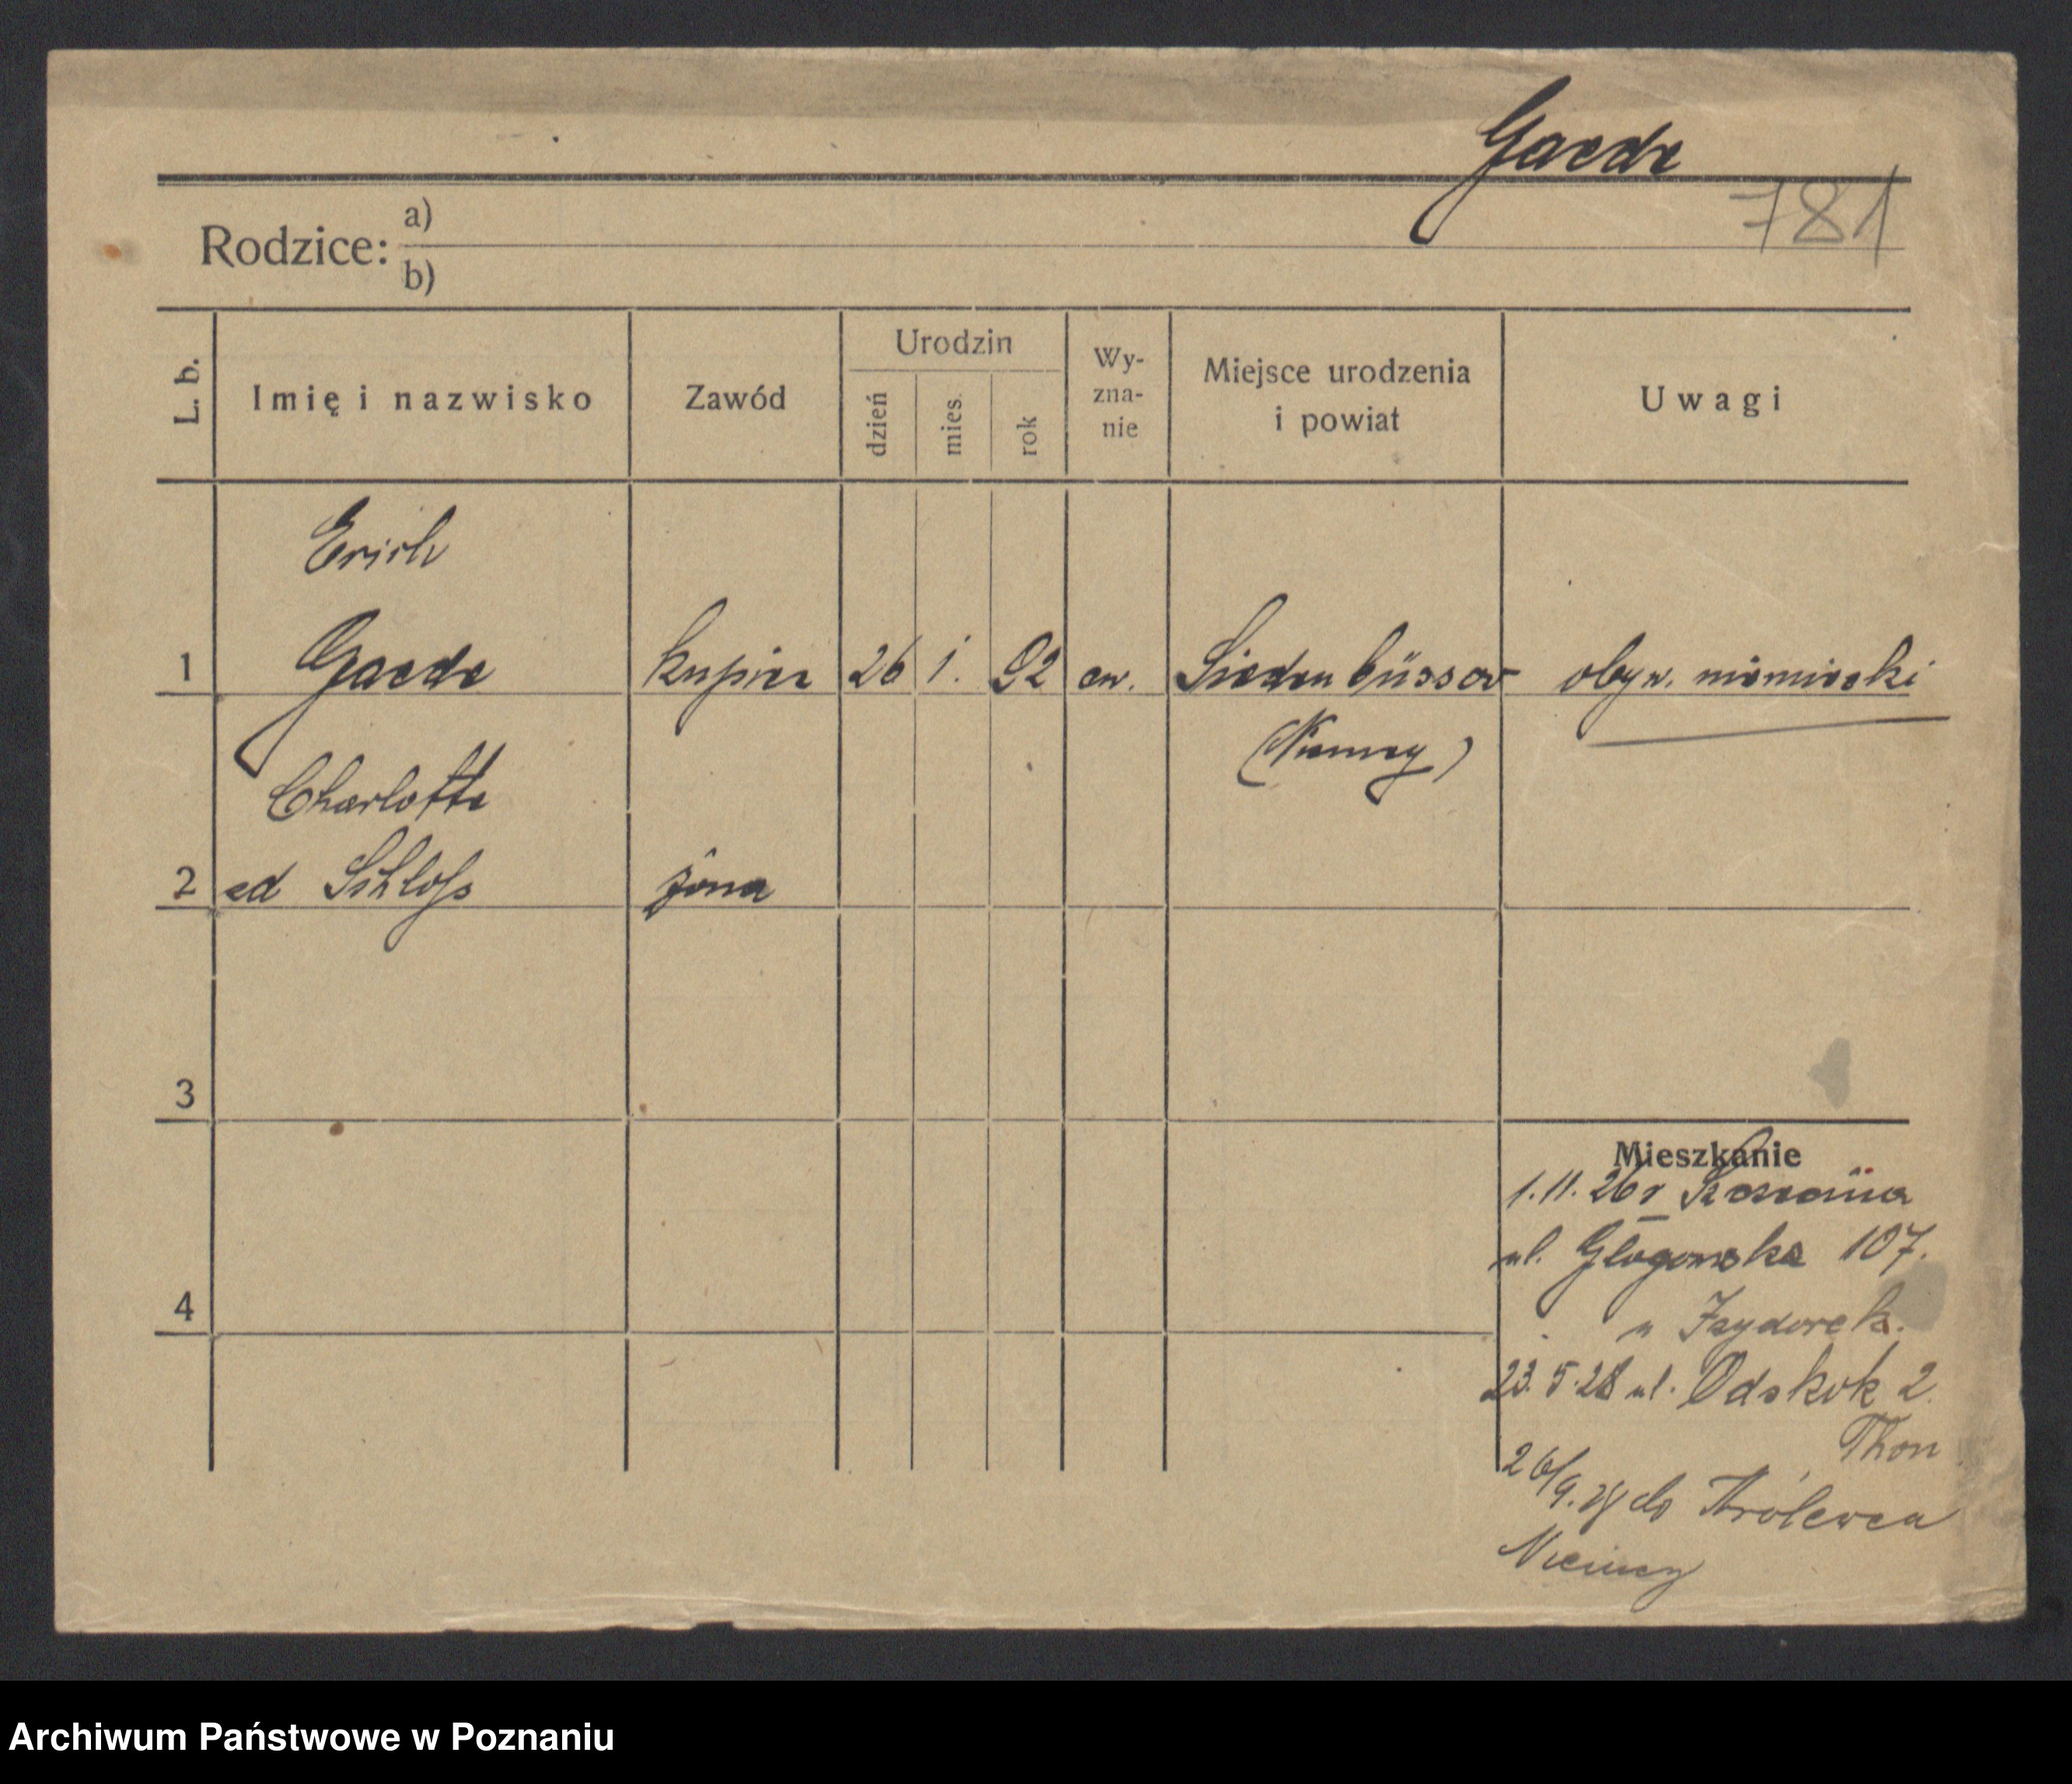 Gaede
781
Rodzice: a)
b)
L. b.
Imię i nazwisko
Zawód
Urodzin
dzień
mies.
rok
Wy-
zna-
nie
Miejsce urodzenia
i powiat
Uwagi
Erich
1 Gaede kupiec 26 1. 92 ew. Siedenbüssow obyw. niemiecki
(Niemcy)
Charlotte
2 zd Schloss żona
3
Mieszkanie
1.11.26r
ul. Głogowska 107.
u Izydorek.
4
23.5.28 ul. Odskok 2.
Thon
26/9.28 do Królewca
Niemcy
Archiwum Państwowe w Poznaniu